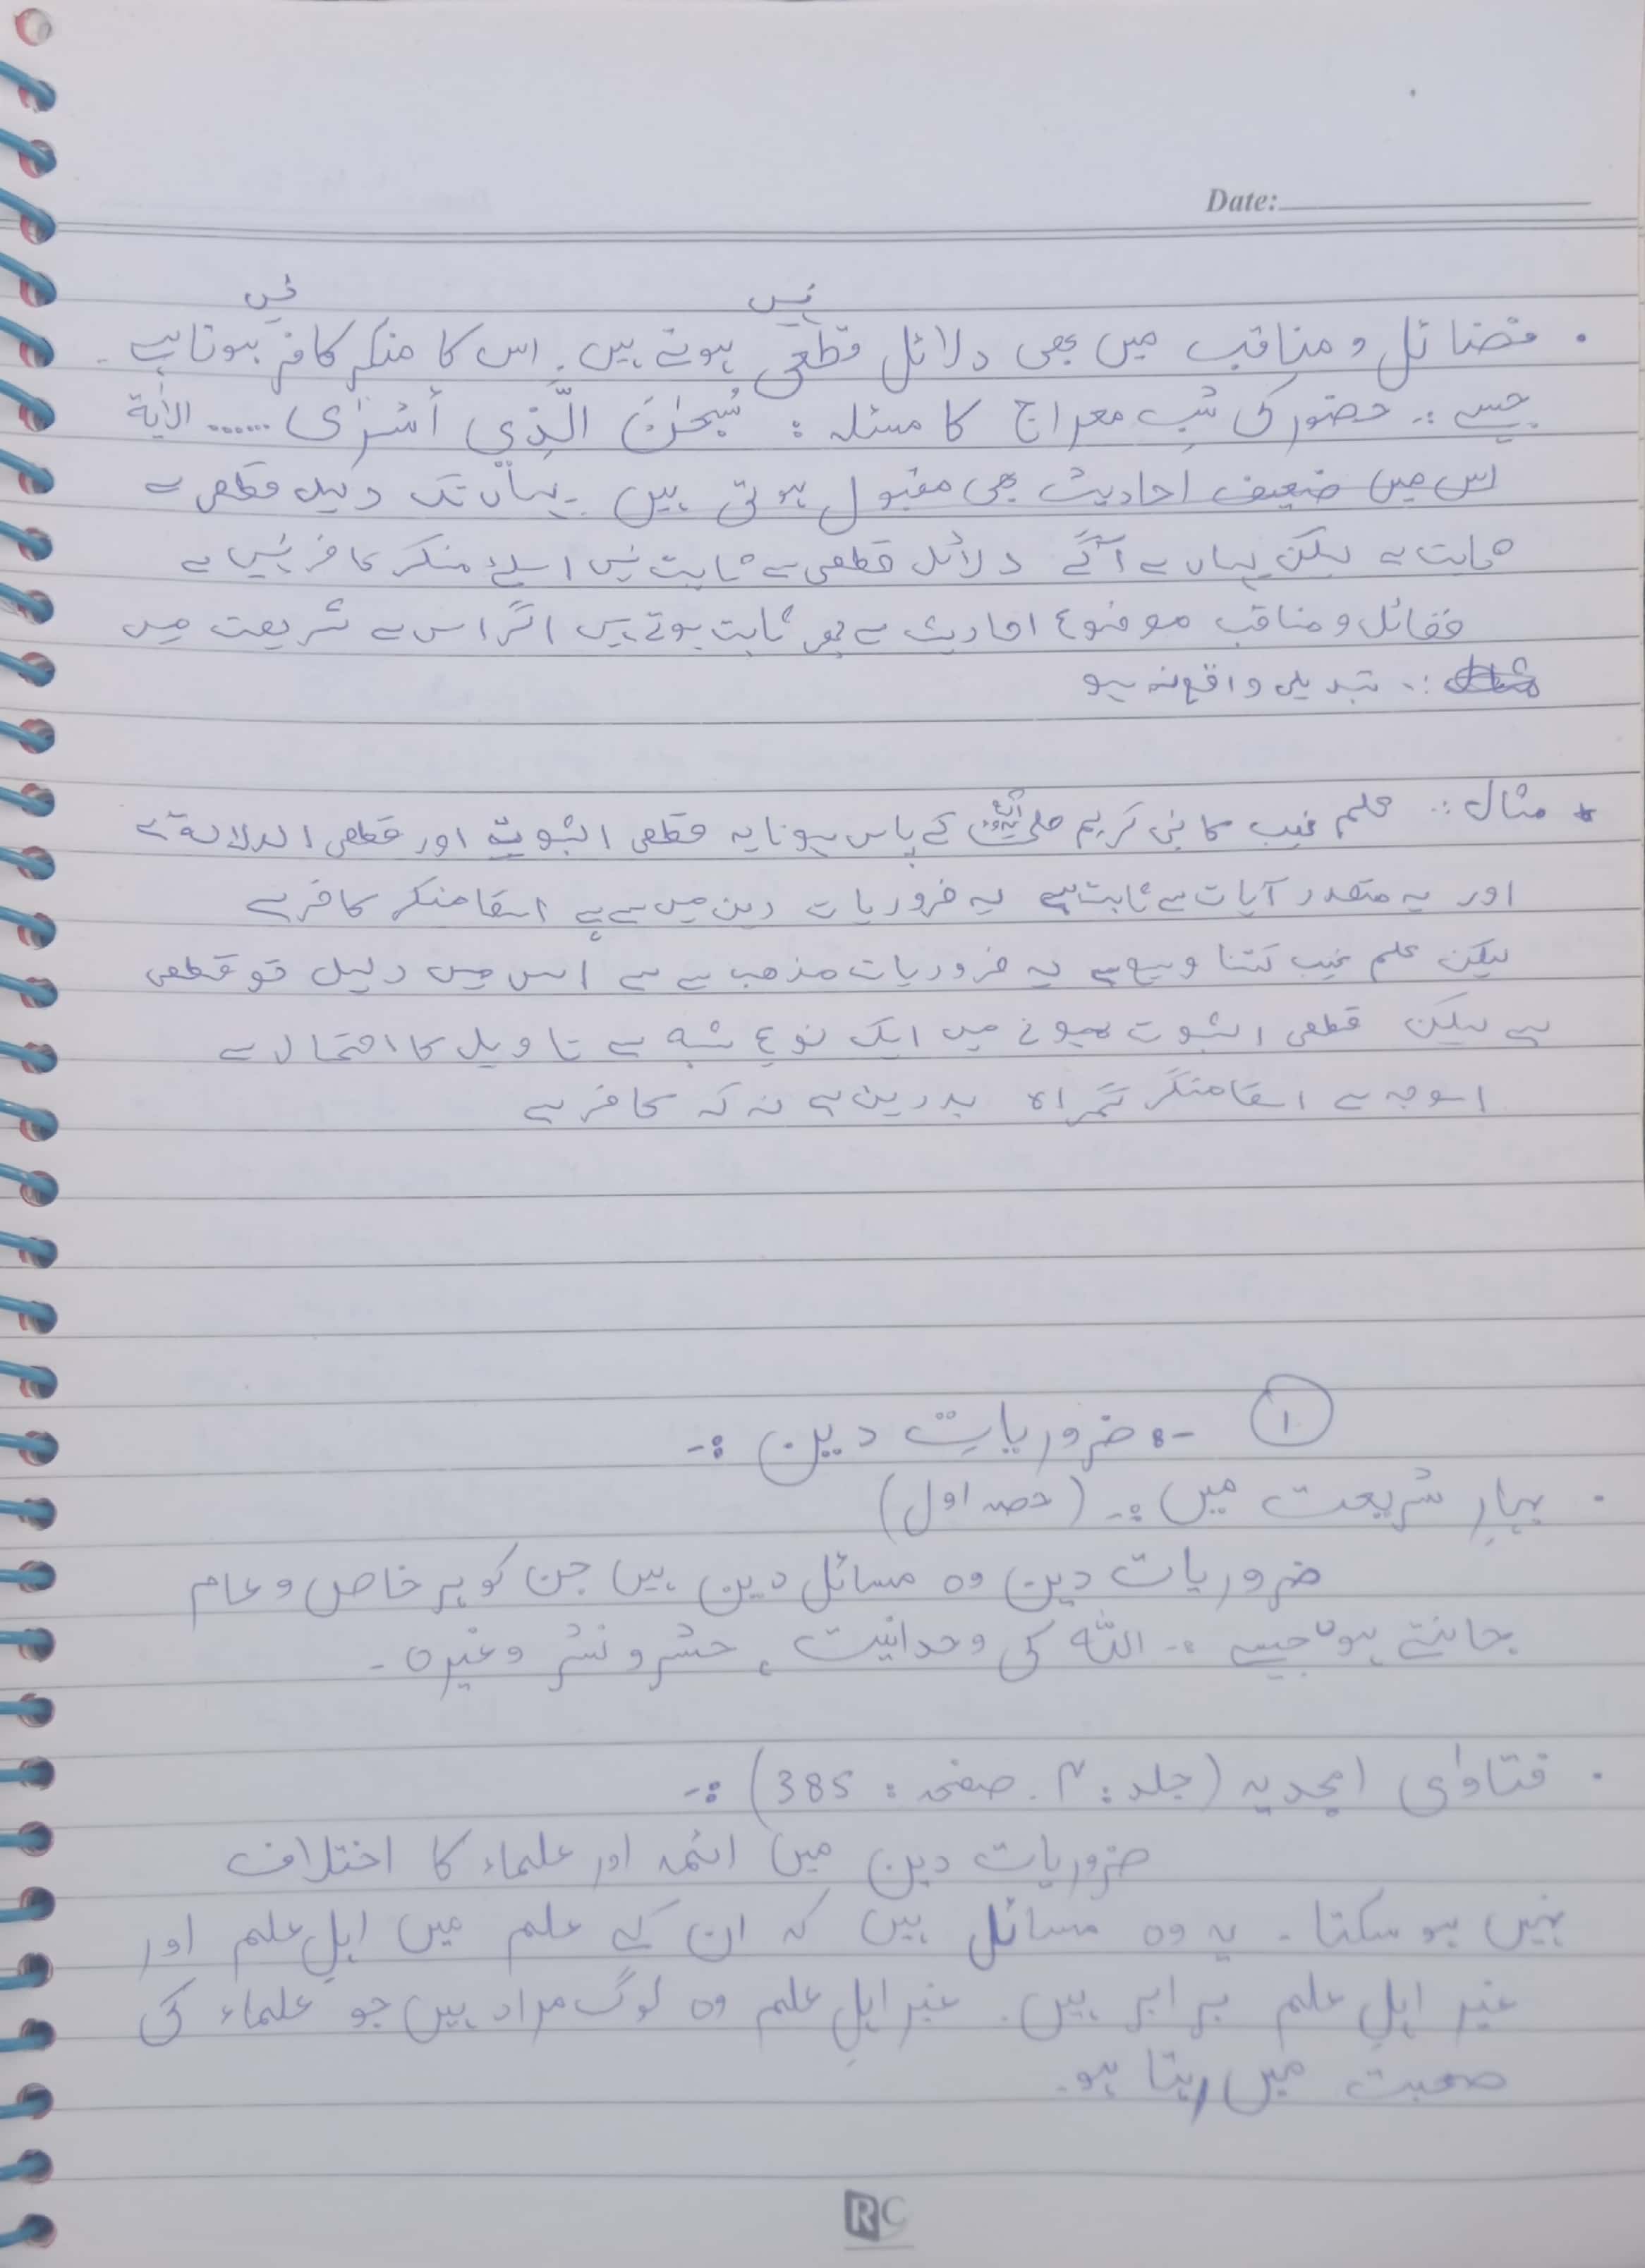 Date:
نہیں نہیں
. فضائل و مناقب میں بھی دلائل قطعی ہوتے ہیں. اس کا منکر کافر ہوتا ہے۔
جیسے :۔ حضور کی شبِ معراج کا مسئلہ : سُبْحٰنَ الَّذِي أَسْرٰى ...... الاٰیة
اس میں ضعیف احادیث بھی مقبول ہوتی ہیں یہاں تک دلیل قطعی سے
ثابت ہے لیکن یہاں سے آگے دلائل قطعی سے ثابت نہیں اسلئے منکر کافر نہیں ہے
فضائل و مناقب موضوع احادیث سے بھی ثابت ہوتے ہیں اگر اس سے شریعت میں
:۔ تبدیلی واقع نہ ہو
* مثال :۔ علم غیب کا نبی کریم صلی اللہ علیہ وسلم کے پاس ہونا یہ قطعی الثبوت اور قطعی الدلالة ہے
اور یہ متعدد آیات سے ثابت ہے یہ ضروریات دین میں سے ہے اسکا منکر کافر ہے
لیکن علم غیب کتنا وسیع ہے یہ ضروریات مذھب سے ہے اس میں دلیل تو قطعی
ہے لیکن قطعی الثبوت ہونے میں ایک نوع شبہ ہے تاویل کا احتمال ہے
اسوجہ سے اسکا منکر گمراہ بددین ہے نہ کہ کافر ہے
۱ -: ضروریاتِ دین :-
. بہارِ شریعت میں :۔ (حصہ اول)
ضروریات دین وہ مسائل دین ہیں جن کو ہر خاص و عام
جانتے ہوں جیسے :۔ اللہ کی وحدانیت، حشر و نشر وغیرہ۔
. فتاوٰی امجدیہ (جلد : ۴. صفحہ : 385) :-
ضروریات دین میں ائمہ اور علماء کا اختلاف
نہیں ہو سکتا۔ یہ وہ مسائل ہیں کہ ان کے علم میں اہلِ علم اور
غیر اہلِ علم برابر ہیں. غیر اہلِ علم وہ لوگ مراد ہیں جو علماء کی
صحبت میں رہتا ہو.
RC